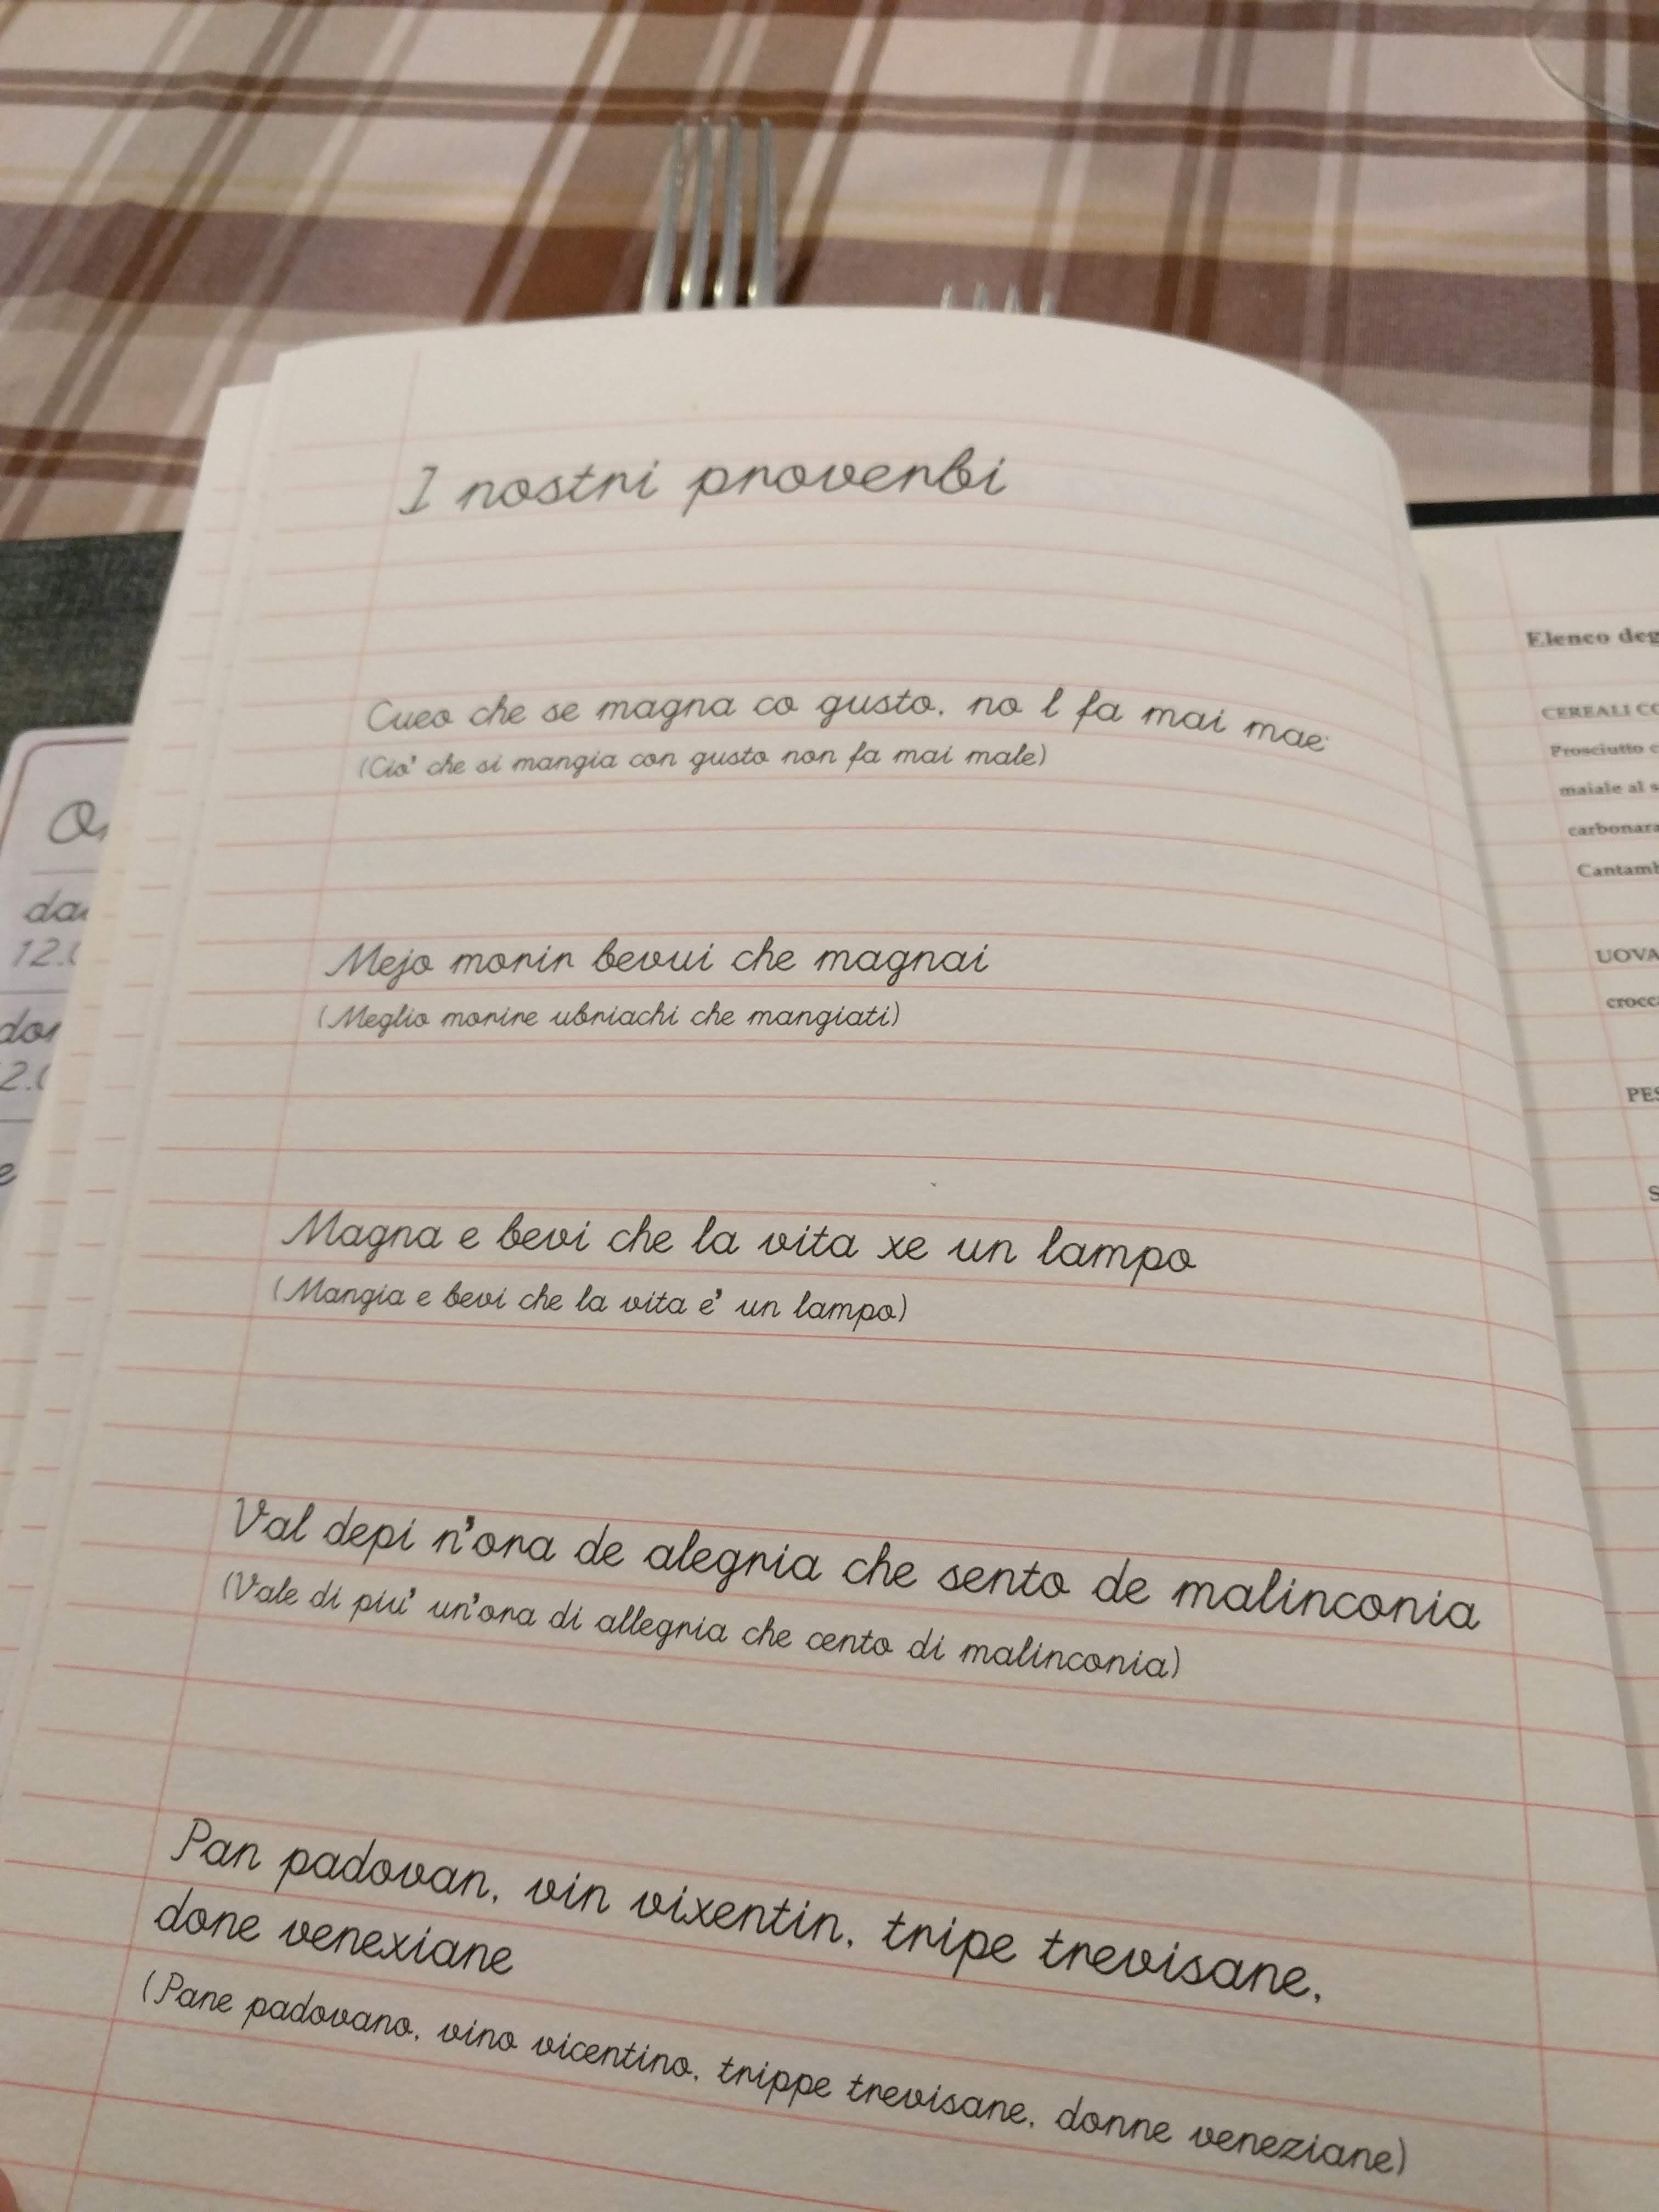 I nostri proverbi
Cueo che se magna co gusto, no l fa mai mae
(Cio' che si mangia con gusto non fa mai male)
Mejo morir bevui che magnai
(Meglio morire ubriachi che mangiati)
Magna e bevi che la vita xe un lampo
(Mangia e bevi che la vita e' un lampo)
Val depi n'ora de alegria che sento de malinconia
(Vale di piu' un'ora di allegria che cento di malinconia)
Pan padovan, vin vixentin, tripe trevisane,
done venexiane
(Pane padovano, vino vicentino, trippe trevisane, donne veneziane)
Elenco
CEREALI
Prosciutto
maiale al
carbonara
UOVA